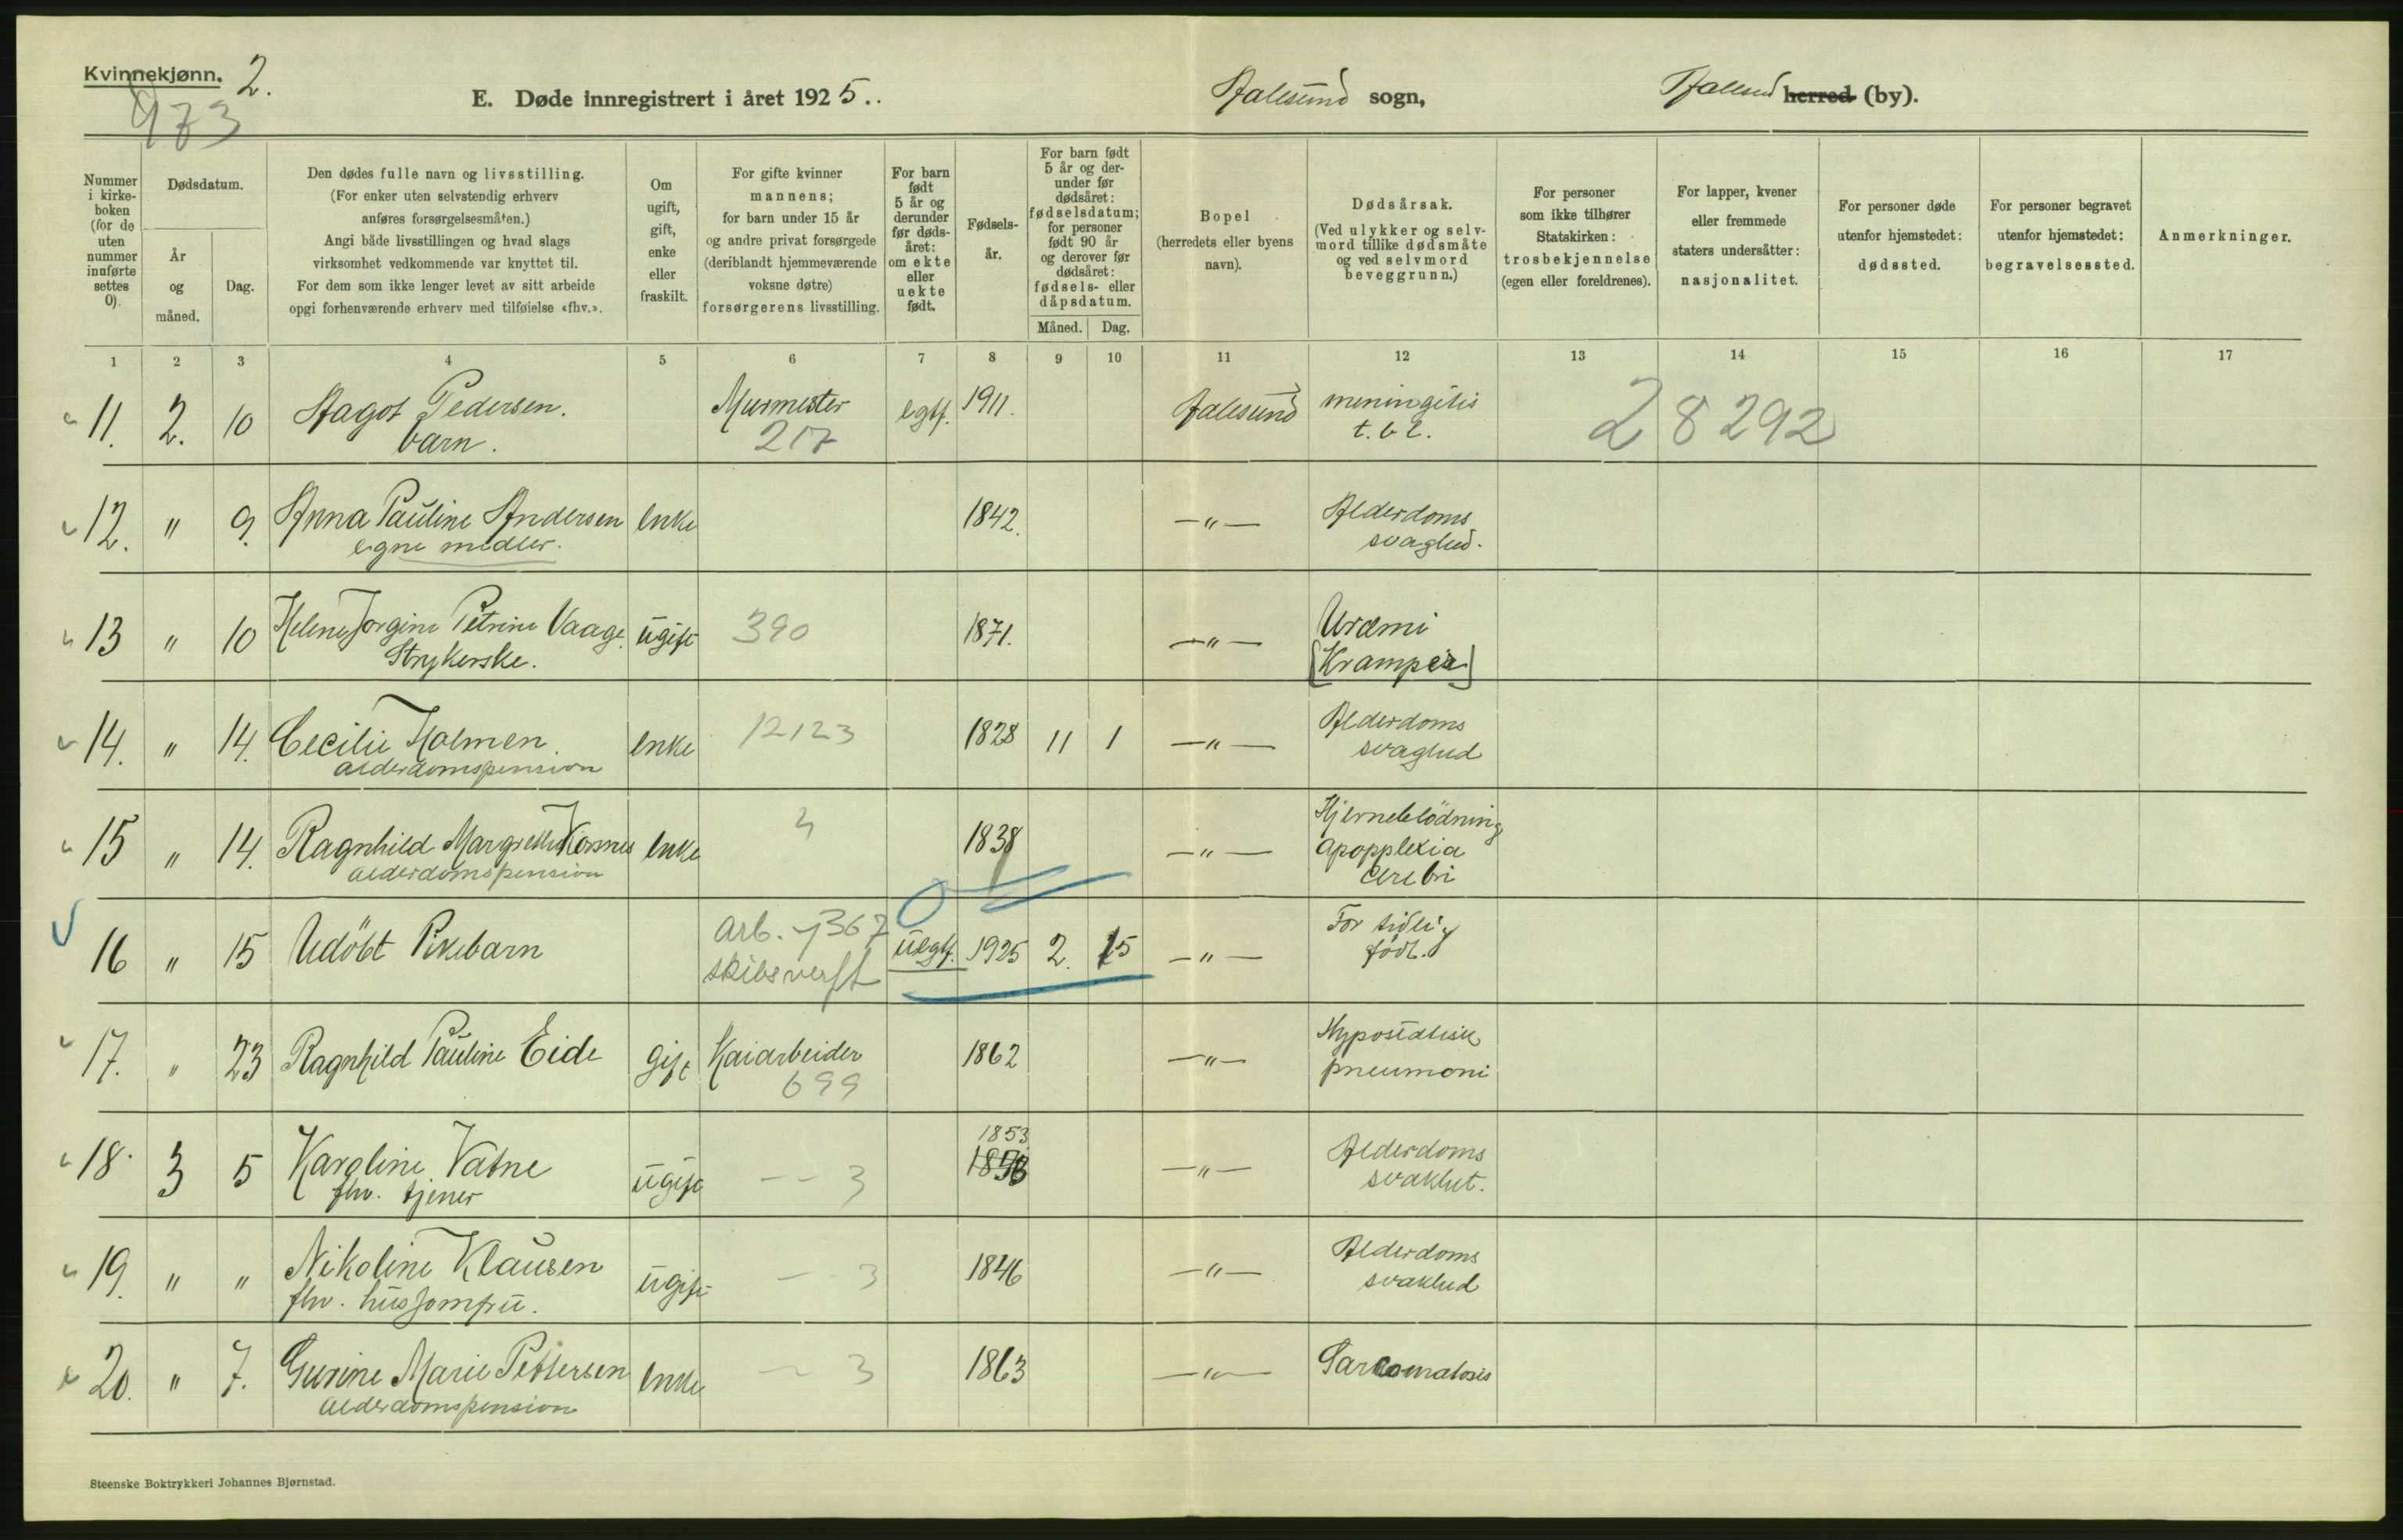 Kvinnekjønn. 2.
973
E. Døde innregistrert i året 1925..
Aalesund sogn,
Aalesund herred (by).
Nummer i kirke-boken (for de uten nummer innførte settes 0).
Dødsdatum.
År og måned.
Dag.
Den dødes fulle navn og livsstilling.
(For enker uten selvstendig erhverv
anføres forsørgelsesmåten.)
Angi både livsstillingen og hvad slags
virksomhet vedkommende var knyttet til.
For dem som ikke lenger levet av sitt arbeide
opgi forhenværende erhverv med tilføielse «fhv.».
Om ugift, gift, enke eller fraskilt.
For gifte kvinner
mannens;
for barn under 15 år
og andre privat forsørgede
(deriblandt hjemmeværende
voksne døtre)
forsørgerens livsstilling.
For barn født 5 år og derunder før døds-året: om ekte eller uekte født.
Fødsels-år.
For barn født 5 år og der-under før dødsåret: fødselsdatum; for personer født 90 år og derover før dødsåret: fødsels- eller dåpsdatum.
Måned. Dag.
Bopel
(herredets eller byens
navn).
Dødsårsak.
(Ved ulykker og selv-
mord tillike dødsmåte
og ved selvmord
beveggrunn.)
For personer
som ikke tilhører
Statskirken:
trosbekjennelse
(egen eller foreldrenes).
For lapper, kvener
eller fremmede
staters undersåtter:
nasjonalitet.
For personer døde
utenfor hjemstedet:
dødssted.
For personer begravet
utenfor hjemstedet:
begravelsessted.
Anmerkninger.
1 2 3 4 5 6 7 8 9 10 11 12 13 14 15 16 17
11. 2. 10 Aagot Pedersen. Murmester egtf. 1911. Aalesund meningitis
barn. 217 t.b.c. 28292
12. " 9. Anna Pauline Andersen enke 1842. —"— Alderdoms
egne midler. svaghed.
13 " 10 Helene Jorgine Petrine Vaage. ugift 390 1871. —"— Uræmi
Strykerske. [Kramper]
14. " 14. Cecilie Holmen. enke 12123 1828 11 1 —"— Alderdoms
alderdomspension svaghed
15 " 14. Ragnhild Margrethe enke 3 1838 —"— Hjerneblödning
alderdomspension Apopplexia
cerebri
16 " 15 Udöbt Pikebarn arb. 367 uegtf. 1925 2. 15 —"— For tidlig
skibsverft født.
17. " 23 Ragnhild Pauline Eide gift Kaiarbeider 1862 —"— Hypostatisk
699 pneumoni
1853
18. 3 5 Karoline Vatne ugift -- 3 —"— Alderdoms
fhv. tjener svakhet.
19. " " Nikoline Klausen ugift -- 3 1846 —"— Alderdoms
fhv. husjomfru. svakhed
20. " 7. Gurine Marie Pettersen enke — 3 1863 —"— Sarcomatosis
alderdomspension
Steenske Boktrykkeri Johannes Bjørnstad.